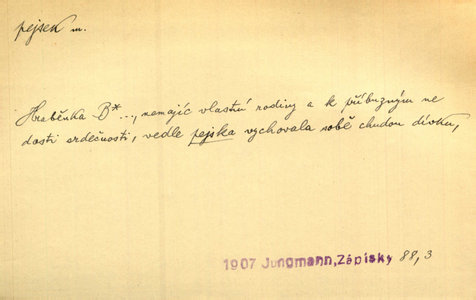 pejsek m.
Hraběnka B*..., nemajíc vlastní rodiny a k příbuzným ne
dosti srdečnosti, vedle pejska vychovala sobě chudou dívku,
1907 Jungmann, Zápisky 88,3